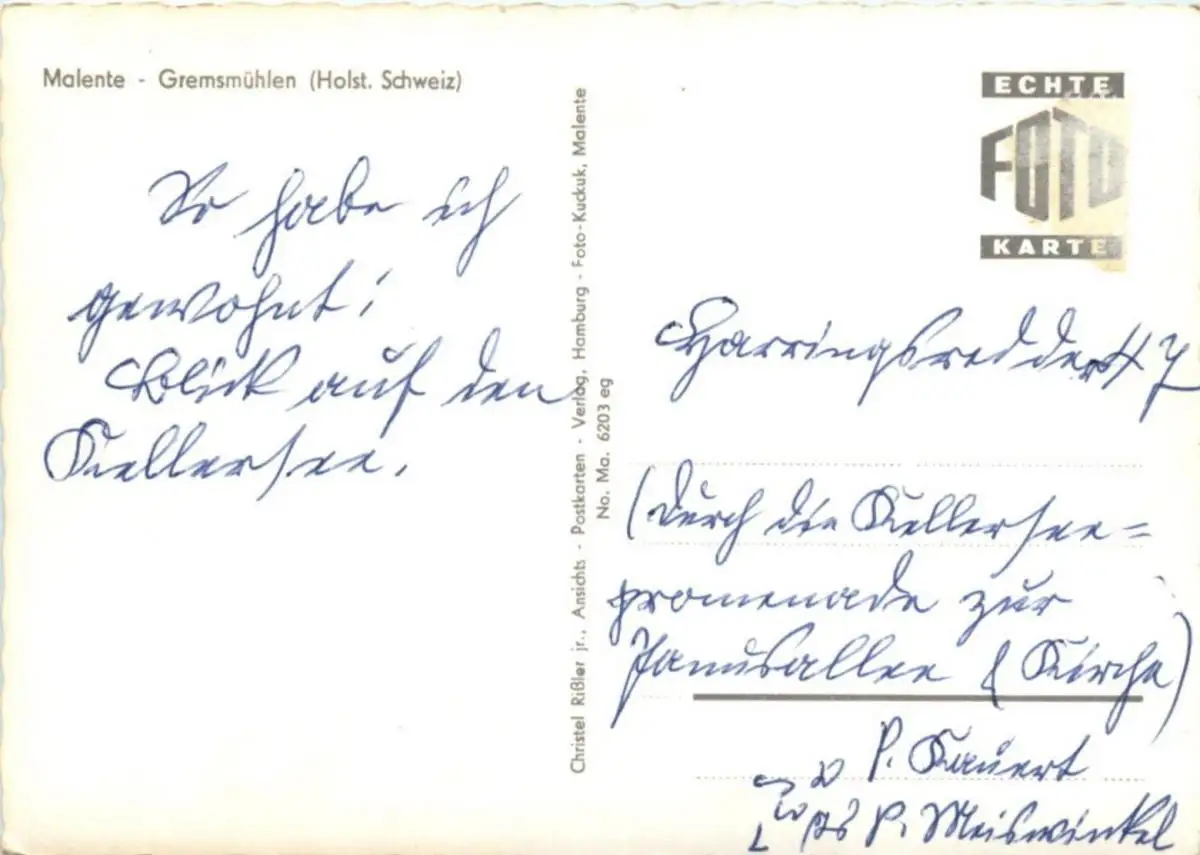 Malente - Gremsmühlen (Holst. Schweiz)
So habe ich
gewohnt!
Blick auf den
Kellersee.
Christel Rißler jr., Ansichts - Postkarten - Verlag, Hamburg - Foto-Kuckuk, Malente
No. Ma. 6203 eg
ECHTE
FOTO
KARTE
7
(durch die Kellersee=
promenade zur
Janusallee & Kirche)
P. Kauert
P. Meiswinkel